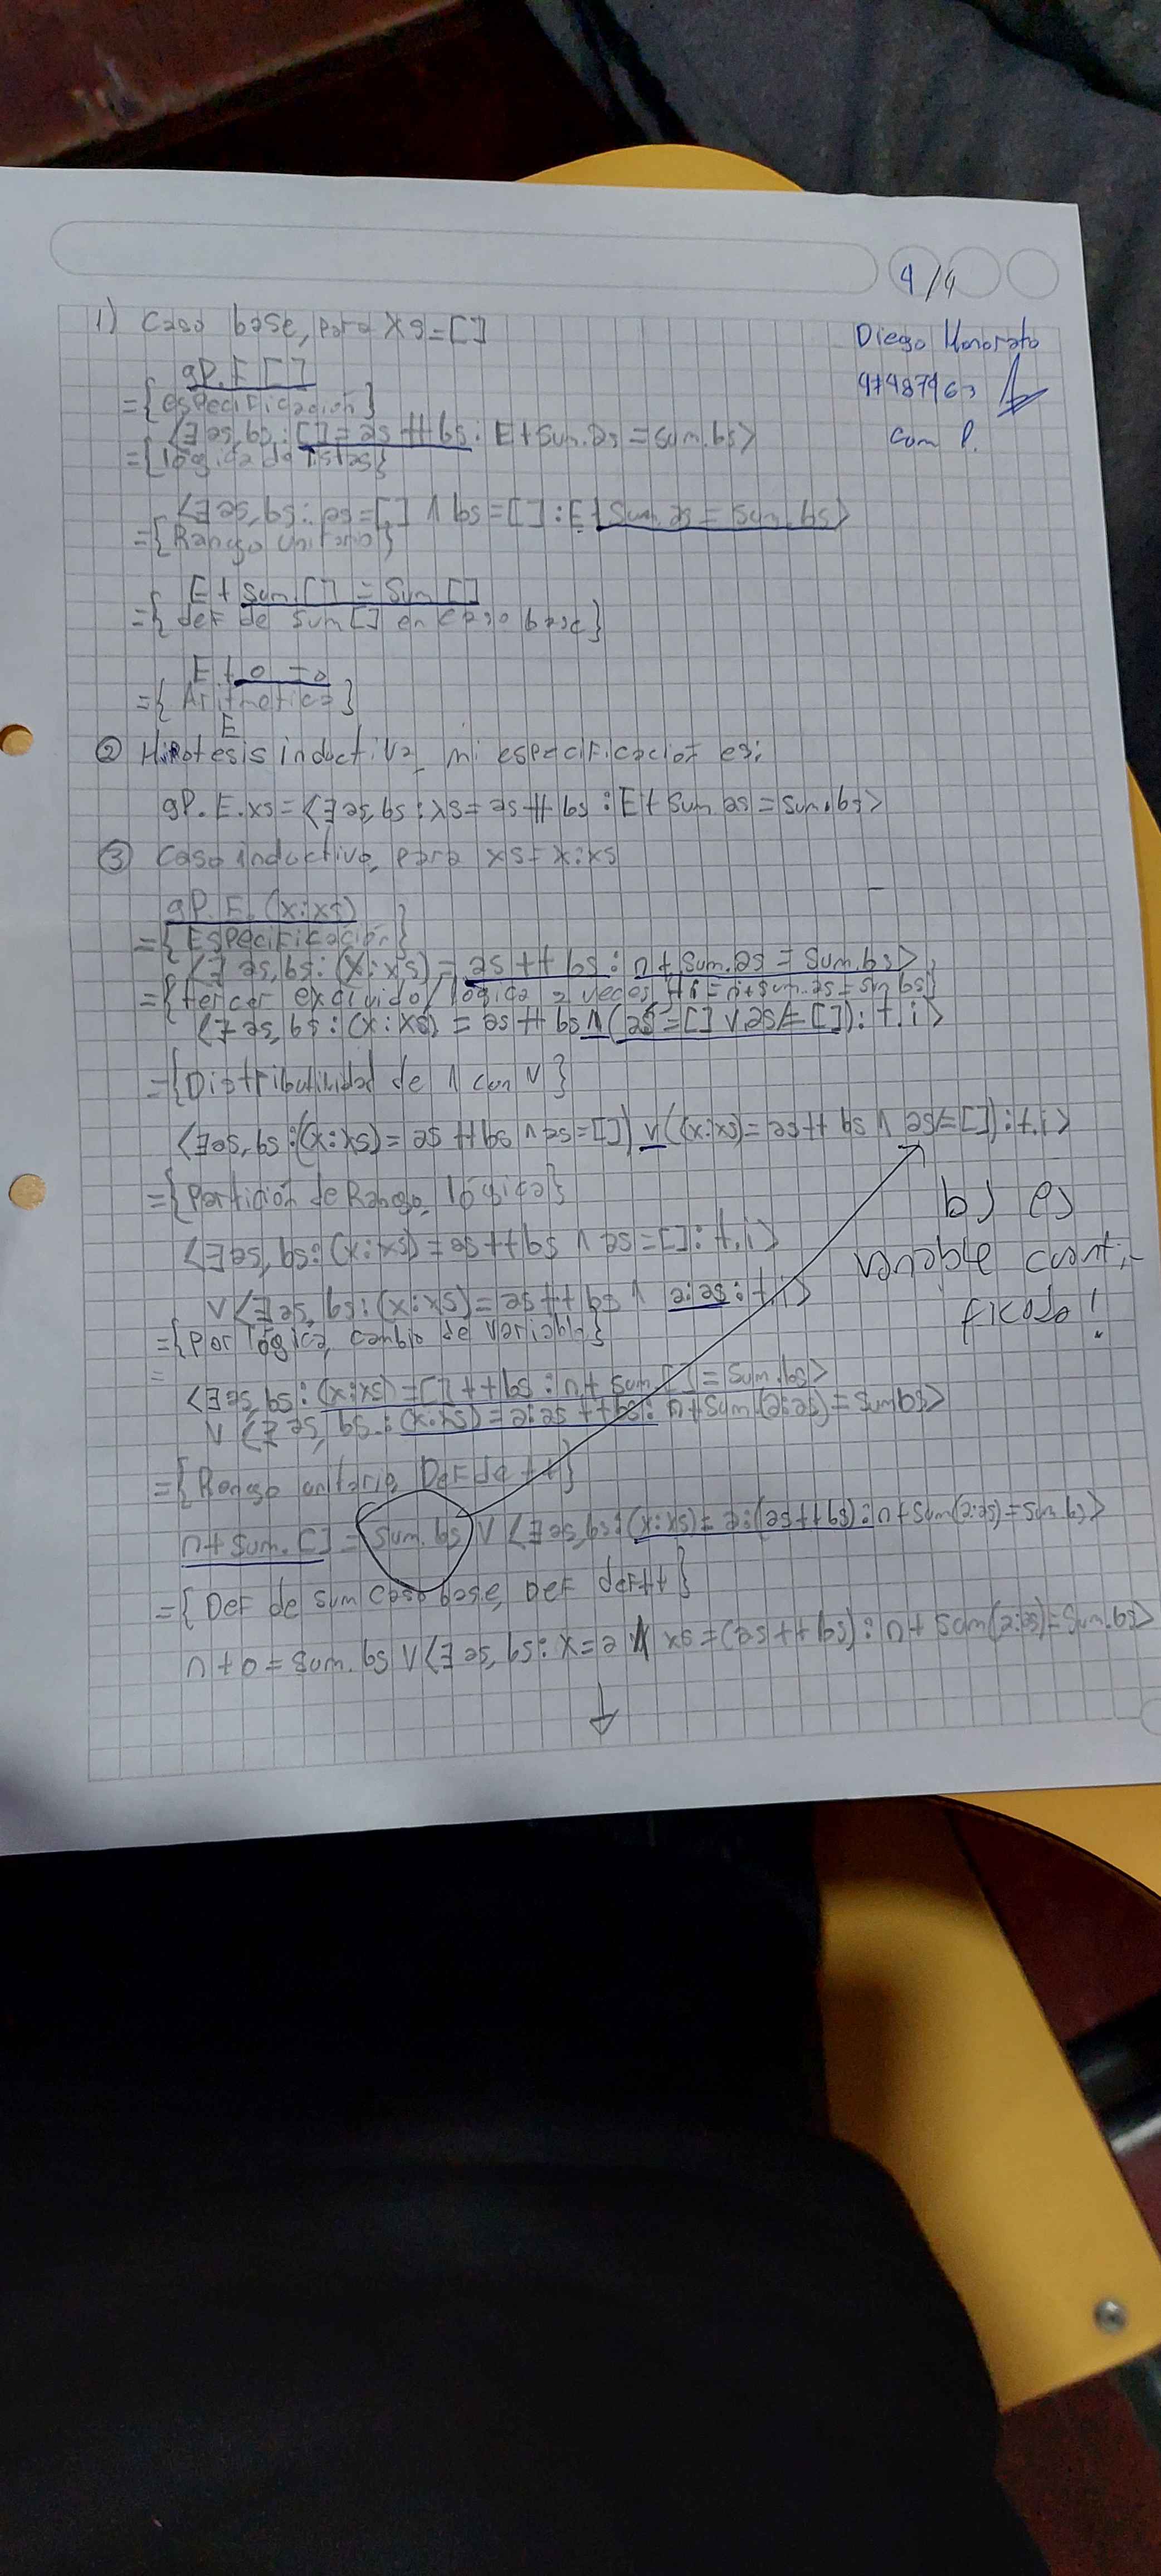 4/4
Diego Honorato
47487963
Com 1.
1) Caso base, para xs=[]
gP.E[]
={especificación}
⟨∃as,bs:[]=as++bs:E+sum.as=sum.bs⟩
={lógica de listas}
⟨∃as,bs:as=[]∧bs=[]:E+sum.as=sum.bs⟩
={Rango unitario}
E+sum.[]=sum[]
={def de sum[] en caso base}
E+0=0
={Aritmetica}
E
② Hipotesis inductiva, mi especificacion es:
gP.E.xs=⟨∃as,bs:xs=as++bs:E+sum.as=sum.bs⟩
③ caso inductivo, para xs=x:xs
gP.E.(x:xs)
={Especificación}
⟨∃as,bs:(x:xs)=as++bs:n+sum.as=sum.bs⟩
={tercer excluido/lógica 2 veces, t.i=n+sum.as=sum bs}
⟨∃as,bs:(x:xs)=as++bs∧(as=[]∨as≠[]):t.i⟩
={Distributividad de ∧ con ∨}
⟨∃as,bs:((x:xs)=as++bs∧as=[])∨((x:xs)=as++bs∧as≠[]):t.i⟩
={Partición de Rango, lógica}
⟨∃as,bs:(x:xs)=as++bs∧as=[]:t.i⟩
∨⟨∃as,bs:(x:xs)=as++bs∧a:as:t.i⟩
={por lógica, cambio de variable}
=
⟨∃as,bs:(x:xs)=[]++bs:n+sum.[]=sum.bs⟩
∨⟨∃as,bs:(x:xs)=a:as++bs:n+sum(a:as)=sumbs⟩
={Rango unitario, Def de ++}
n+sum.[]=sum.bs∨⟨∃as,bs:(x:xs)=a:(as++bs):n+sum(a:as)=sum.bs⟩
={Def de sum caso base, Def de ++}
n+0=sum.bs∨⟨∃as,bs:x=a∧xs=(as++bs):n+sum(a:as)=sum.bs⟩
bs es
variable cuanti-
ficada!